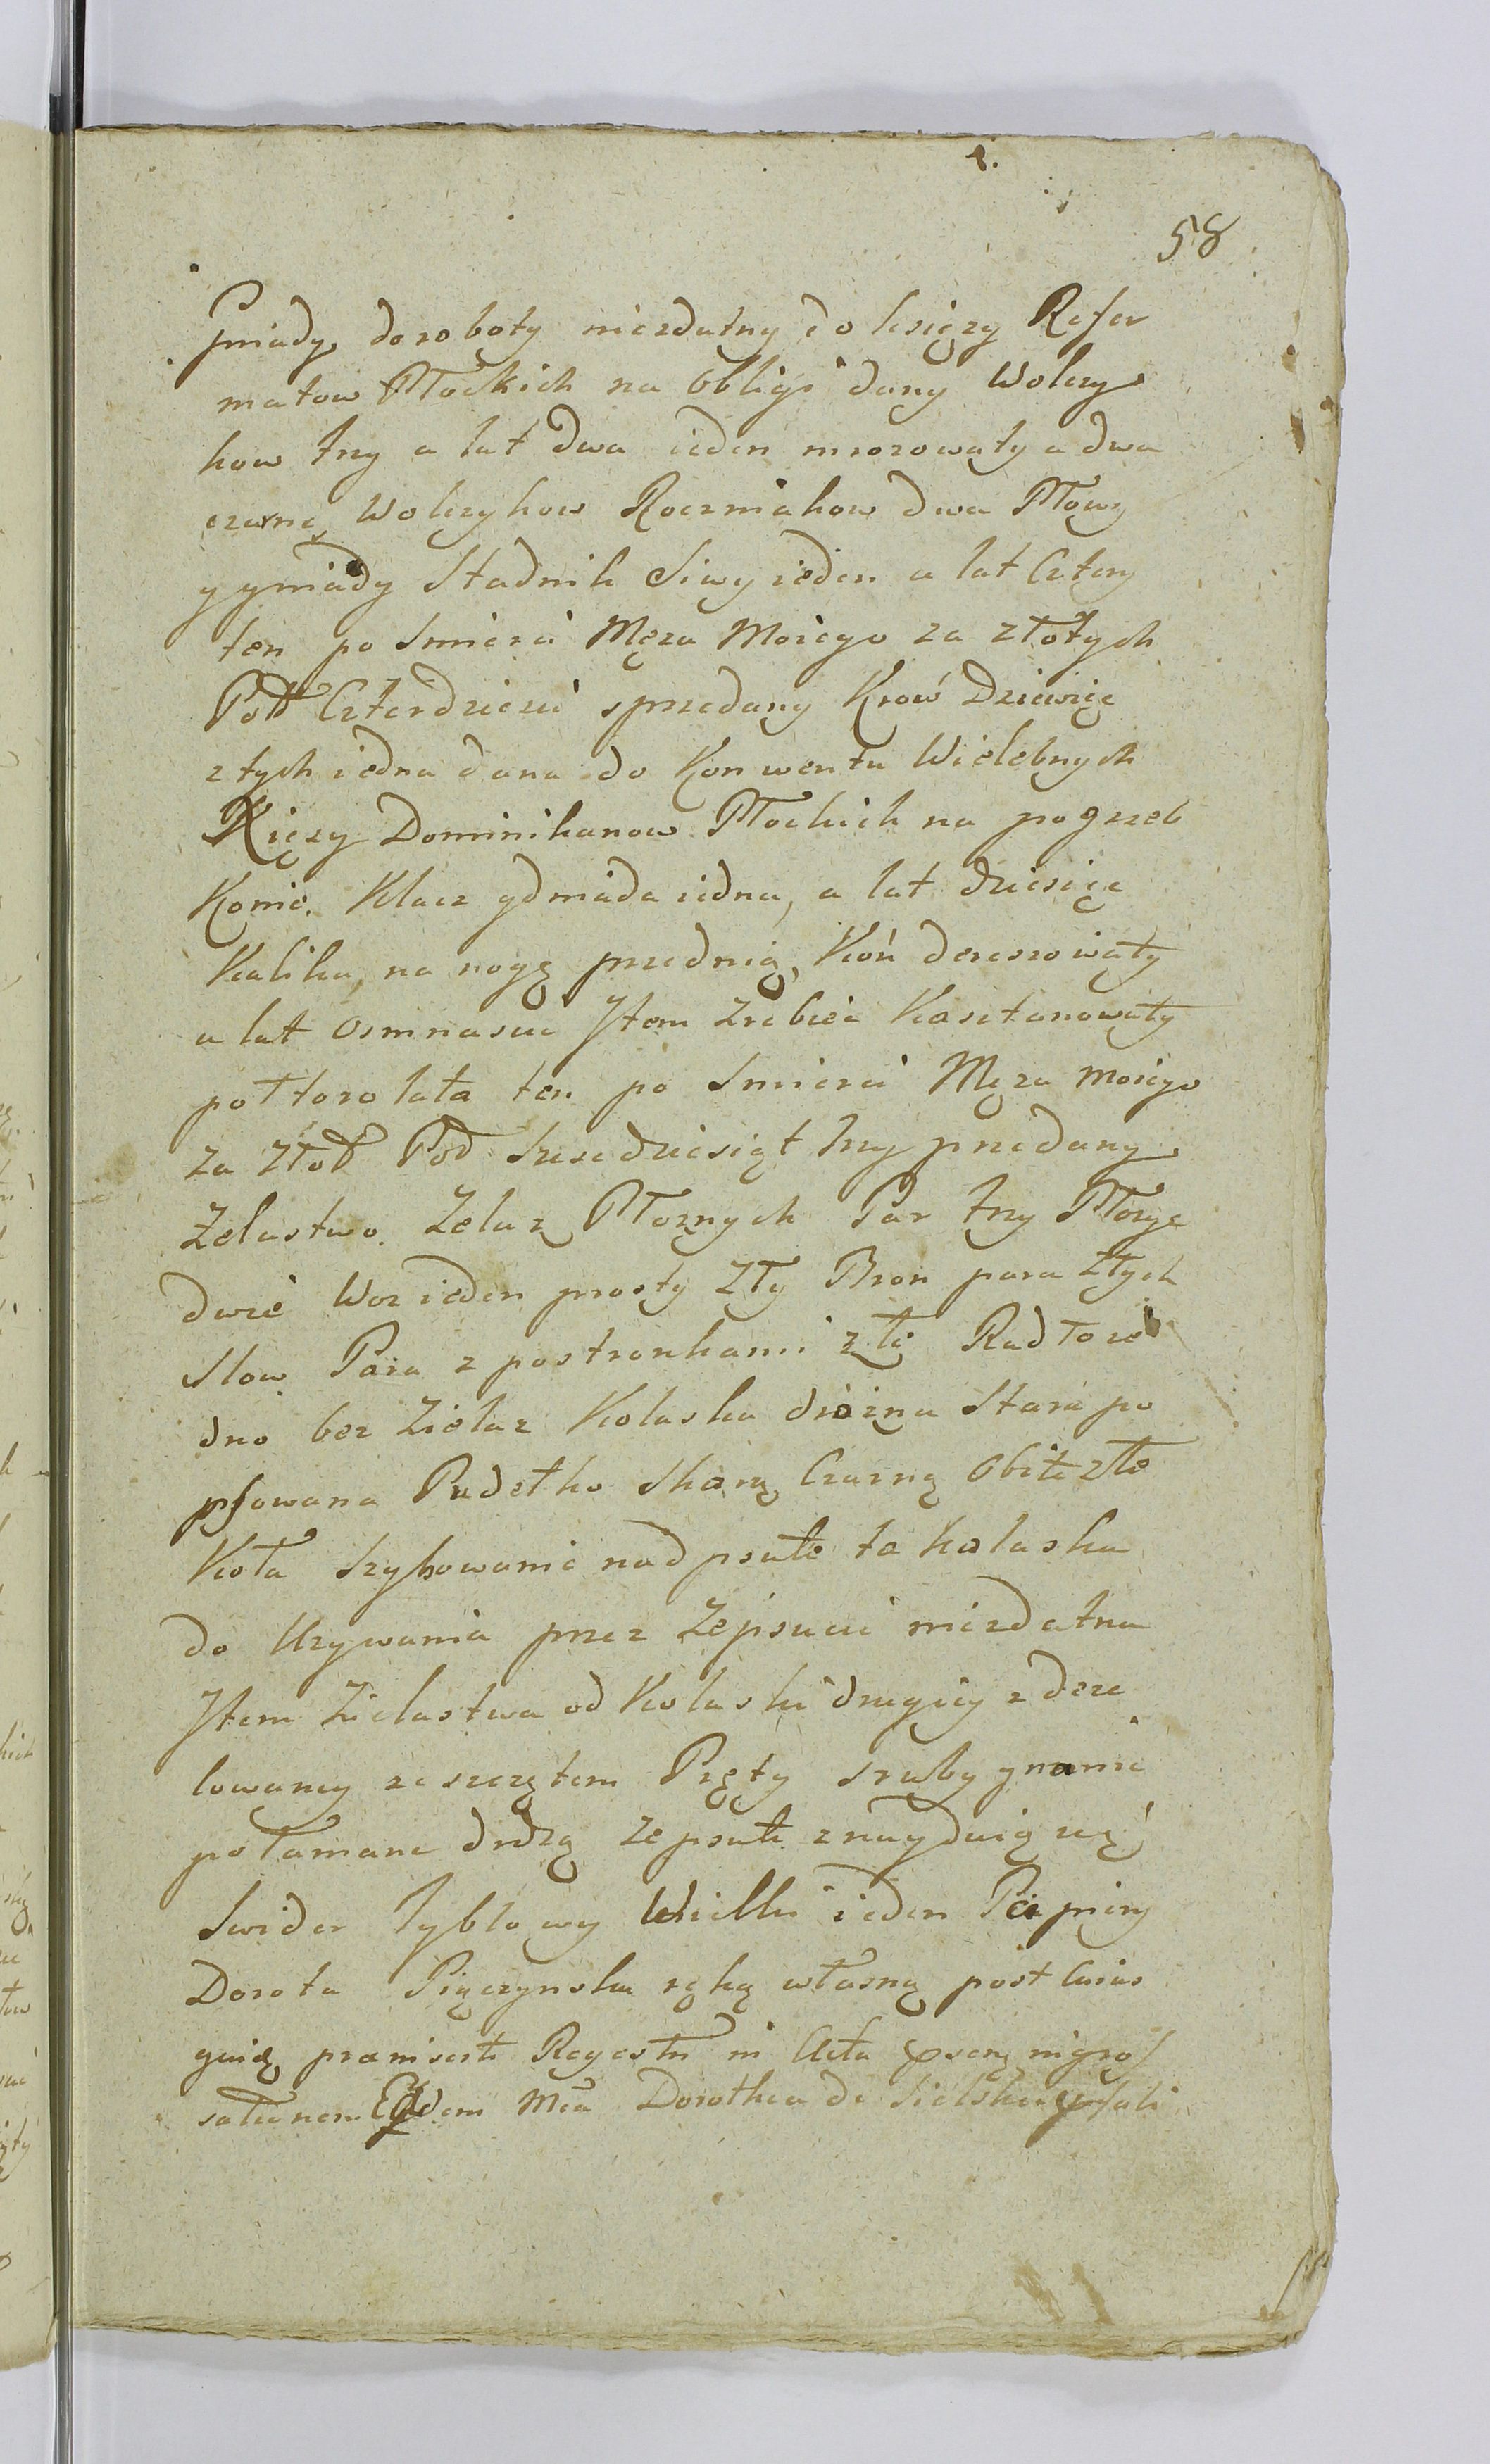 58
Gniady do roboty niezdatny do księży Refor
matow Płockich na obligi dany Wolczy
kow trzy a lat dwa ieden mrozowaty a dwa
czarne, Wolczykow Roczniakow dwa Płowy
y gniady Stadnik Siwy ieden a lat Cztery
ten po Smierci Męza Moiego za złotych
Poł Czterdziesci sprzedany Krow Dziewięc
z tych iedna dana do Konwentu Wielebnych
Xięzy Dominikanow Płockich na pogrzeb
Konie. Klacz gdniada iedna, a lat dziesięc
Kalika, na nogę przednią, Koń dereszowaty
a lat osmnascie Item Zrebiec Kasztanowaty
poł toro lata ten po Smierci Męza moiego
za złot Pod Szescdziesiąt trzy przedany
Zelastwo. Zelaz Płoznych Par trzy Płozyc
dwie Woz ieden prosty Zły Bron para Złych
Slow Para z postronkami złe Radło ie
dno bez Zielaz Kolaska drożna Stara po
psowana Pudełko Skorą Czarną Obite złe
Koła Szybowanie nadpsute ta kolaska
do Uzywania przez Zepsucie niezdatna
Item Zielastwa od Kolaski drugiey z deze
lowaney ze szczętem Pręty sruby ynanic
połamane drdzą zepsute znayduią się
Swider Tyblowy Wielki ieden
Dorota Pięczynska ręką własną post Cuius
quid, pramissti Regestri in Acta psen ingros
sationem Eadem Mca Dorothea de Sielskie